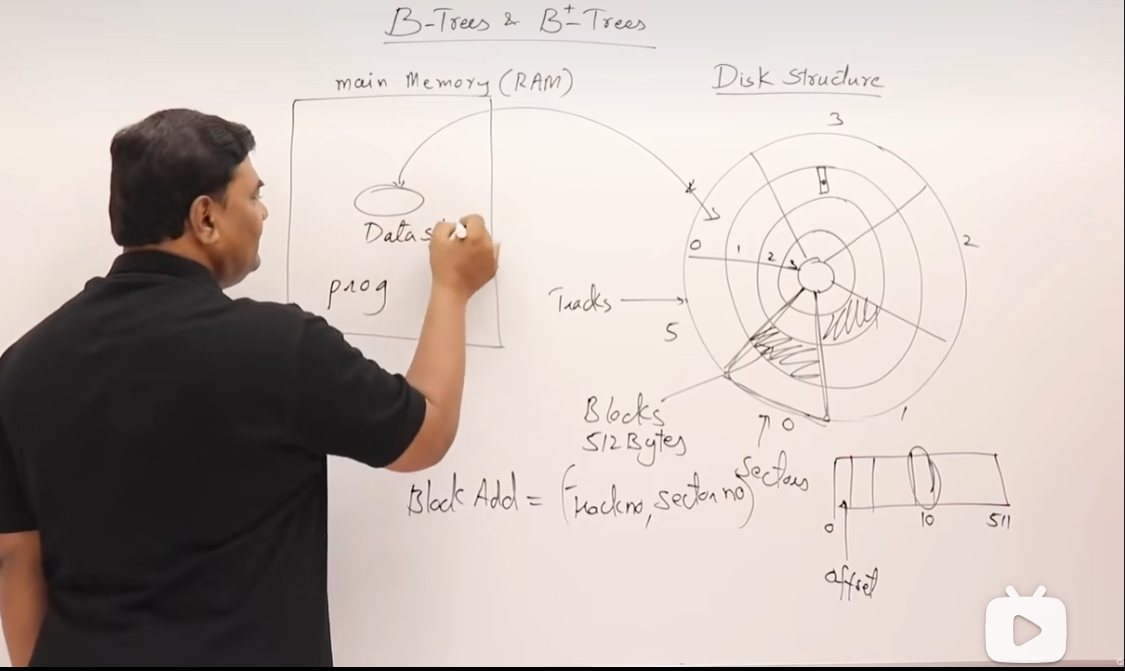 B-Trees & B+-Trees
main Memory (RAM)
Disk Structure
3
0
1
2
2
Data s
prog
Tracks
5
Blocks
512 Bytes
0
1
Sectors
Block Add = (Track no, Sector no)
0
10
511
offset